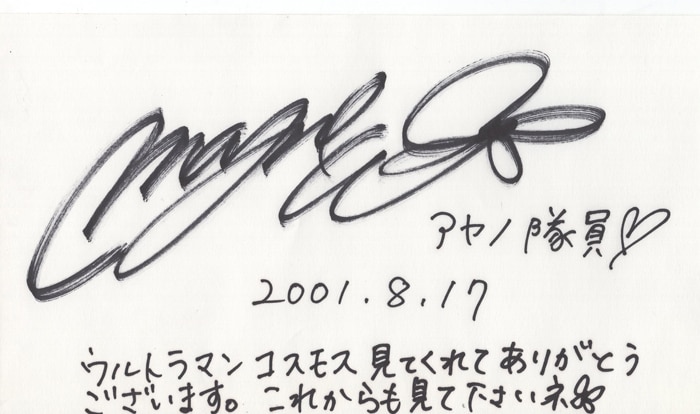 アヤノ隊員♡
2001.8.17
ウルトラマンコスモス見てくれてありがとう
ございます。これからも見て下さいネ